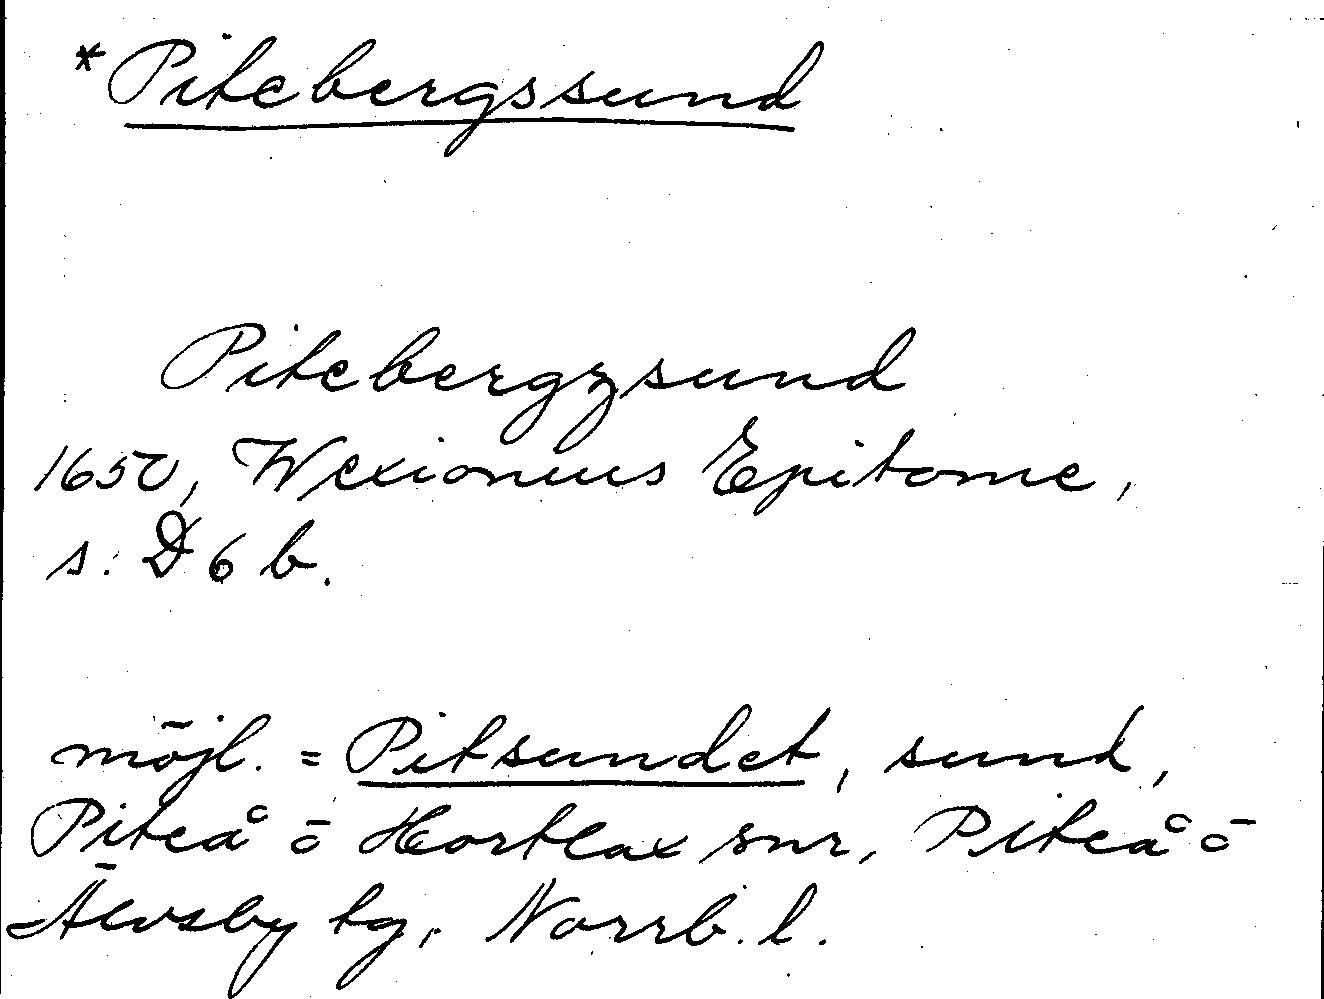 *Pitebergssund
Pitebergzsund
1650, Wexionius Epitome,
s. D 6 b.
möjl. = Pitsundet, sund,
Piteå o Hortlax snr, Piteå o
Älvsby tg, Norrb. l.